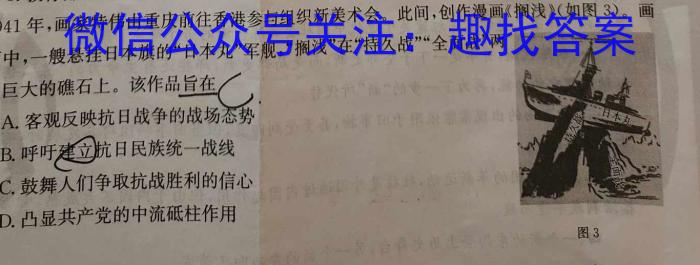 41年,画家特伟由重庆前往香港参与组织新美术会。此间,创作漫画《搁浅》(如图3)。画
中,一艘悬挂日本旗的“日本丸”军舰“搁浅”在“持久战”“全面战”两
微信公众号关注:趣找答案
巨大的礁石上。该作品旨在
A. 客观反映抗日战争的战场态势
B. 呼吁建立抗日民族统一战线
C. 鼓舞人们争取抗战胜利的信心
D. 凸显共产党的中流砥柱作用
日本丸
持久战
图3